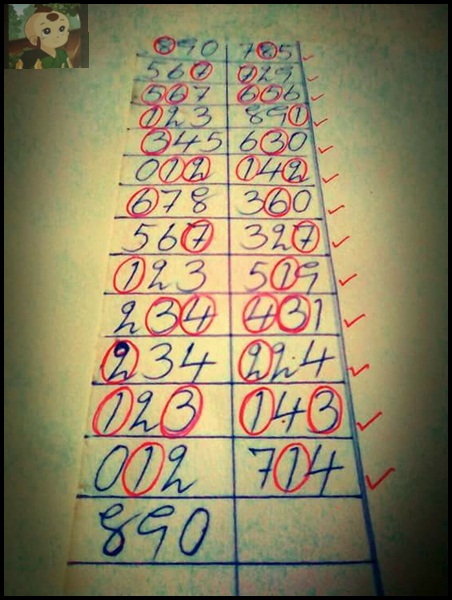 890 785
567 729
567 656
123 891
345 630
012 142
678 360
567 327
123 519
234 431
234 224
123 143
012 714
890